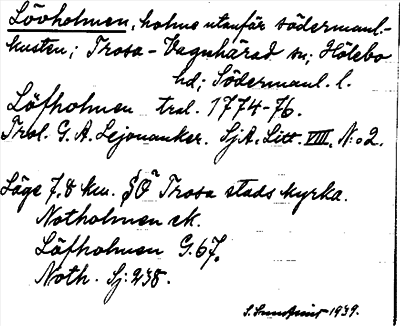 Lövholmen, holme utanför södermanl.-
kusten; Trosa-Vagnhärad sn; Hölebo
hd; Södermanl. l.
Löfholmen tral. 1774-76.
Trol. G. A. Lejonanker. SjA. Litt. VIII. N:o 2.
Läge 7,8 km. SO Trosa stads kyrka.
Notholmen ek.
Löfholmen G. 67.
Noth. Sj: 238.
1939.